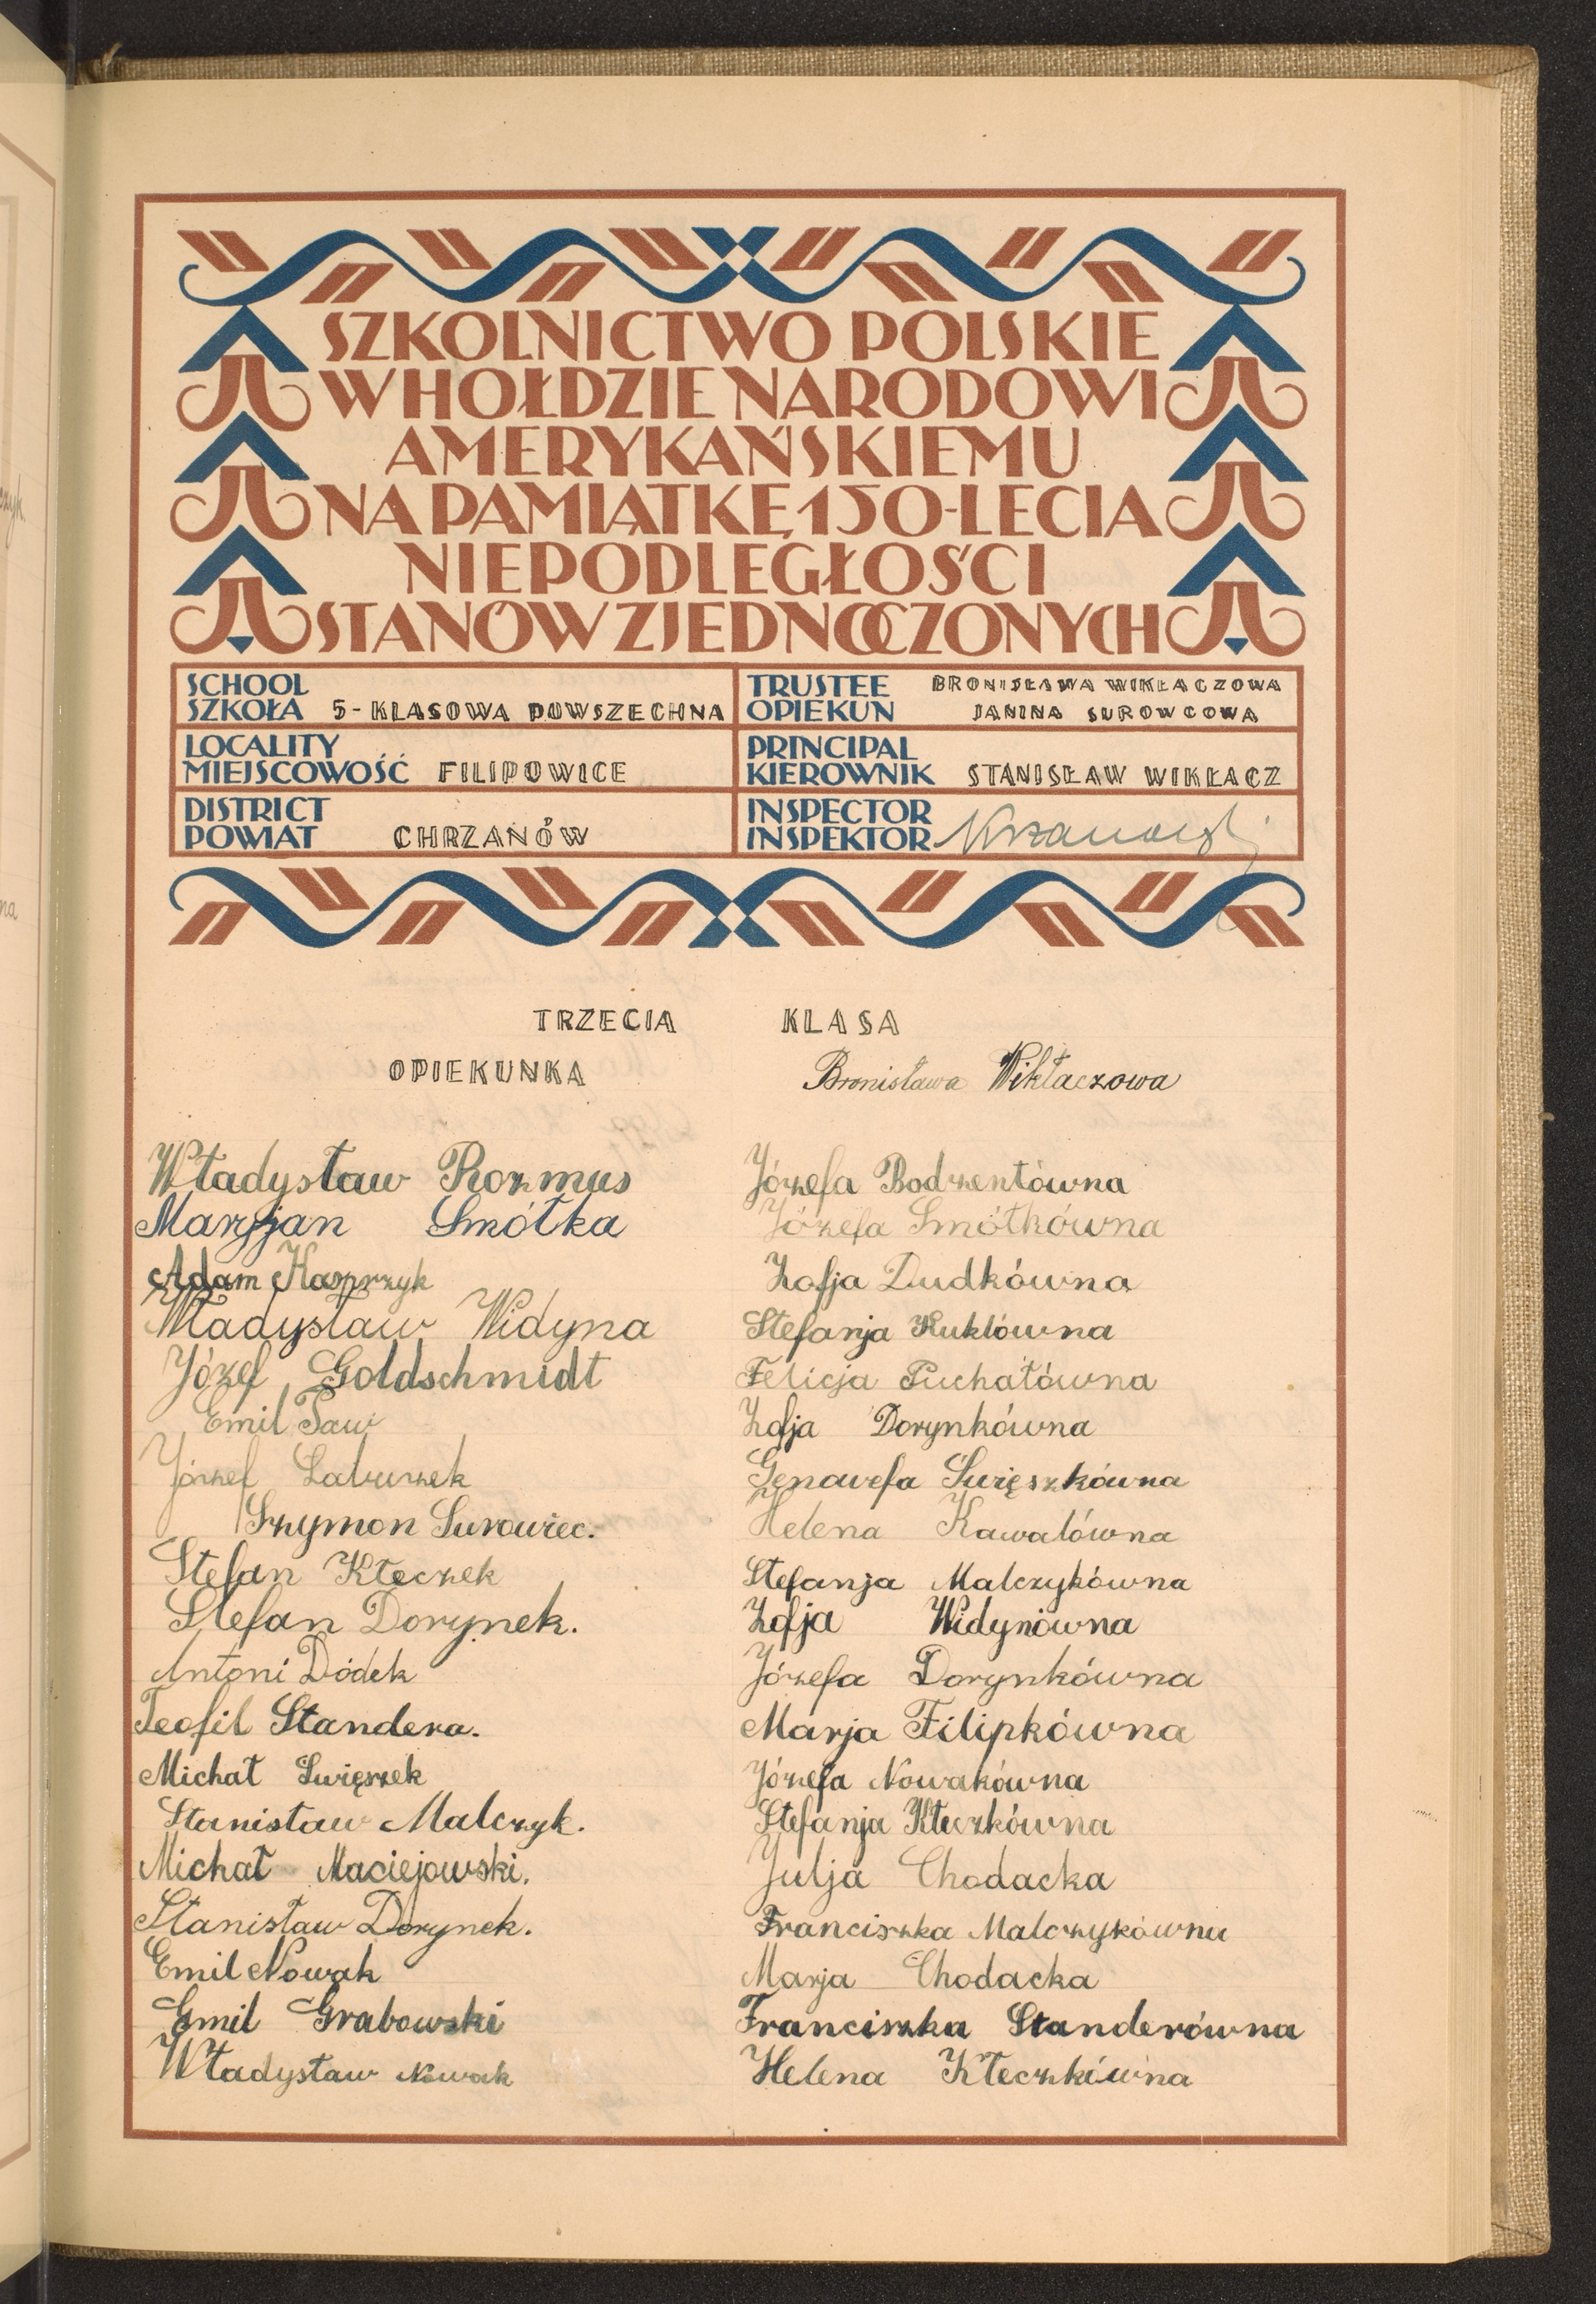 SZKOLNICTWO POLSKIE
W HOŁDZIE NARODOWI
AMERYKAŃSKIEMU
NA PAMIĄTKĘ 150-LECIA
NIEPODLEGŁOŚCI
STANÓW ZJEDNOCZONYCH
SCHOOL
SZKOŁA 5-KLASOWA POWSZECHNA
TRUSTEE BRONISŁAWA WIKŁACZOWA
OPIEKUN JANINA SUROWCOWA
LOCALITY
MIEJSCOWOŚĆ FILIPOWICE
PRINCIPAL
KIEROWNIK STANISŁAW WIKŁACZ
DISTRICT
POWIAT CHRZANÓW
INSPECTOR
INSPEKTOR
TRZECIA KLASA
OPIEKUNKA Bronisława Wikłaczowa
Władysław Rozmus
Maryjan Smółka
Adam Kasprzyk
Władysław Widyna
Józef Goldschmidt
Emil Paw
Józef Laburzek
Szymon Surowiec.
Stefan Kłeczek
Stefan Dorynek.
Antoni Dódek
Teofil Standera.
Michał Święszek
Stanisław Malczyk.
Michał Maciejowski.
Stanisław Dorynek.
Emil Nowak
Emil Grabowski
Władysław Nowak
Józefa Bodzentówna
Józefa Smółkówna
Zofja Dudkówna
Stefanja Kuklówna
Felicja Puchałówna
Zofja Dorynkówna
Genowefa Święszkówna
Helena Kawalówna
Stefanja Malczykówna
Zofja Widynówna
Józefa Dorynkówna
Marja Filipkówna
Józefa Nowakówna
Stefanja Kłeczkówna
Julja Chodacka
Franciszka Malczykówna
Marja Chodacka
Franciszka Standerówna
Helena Kłeczkówna